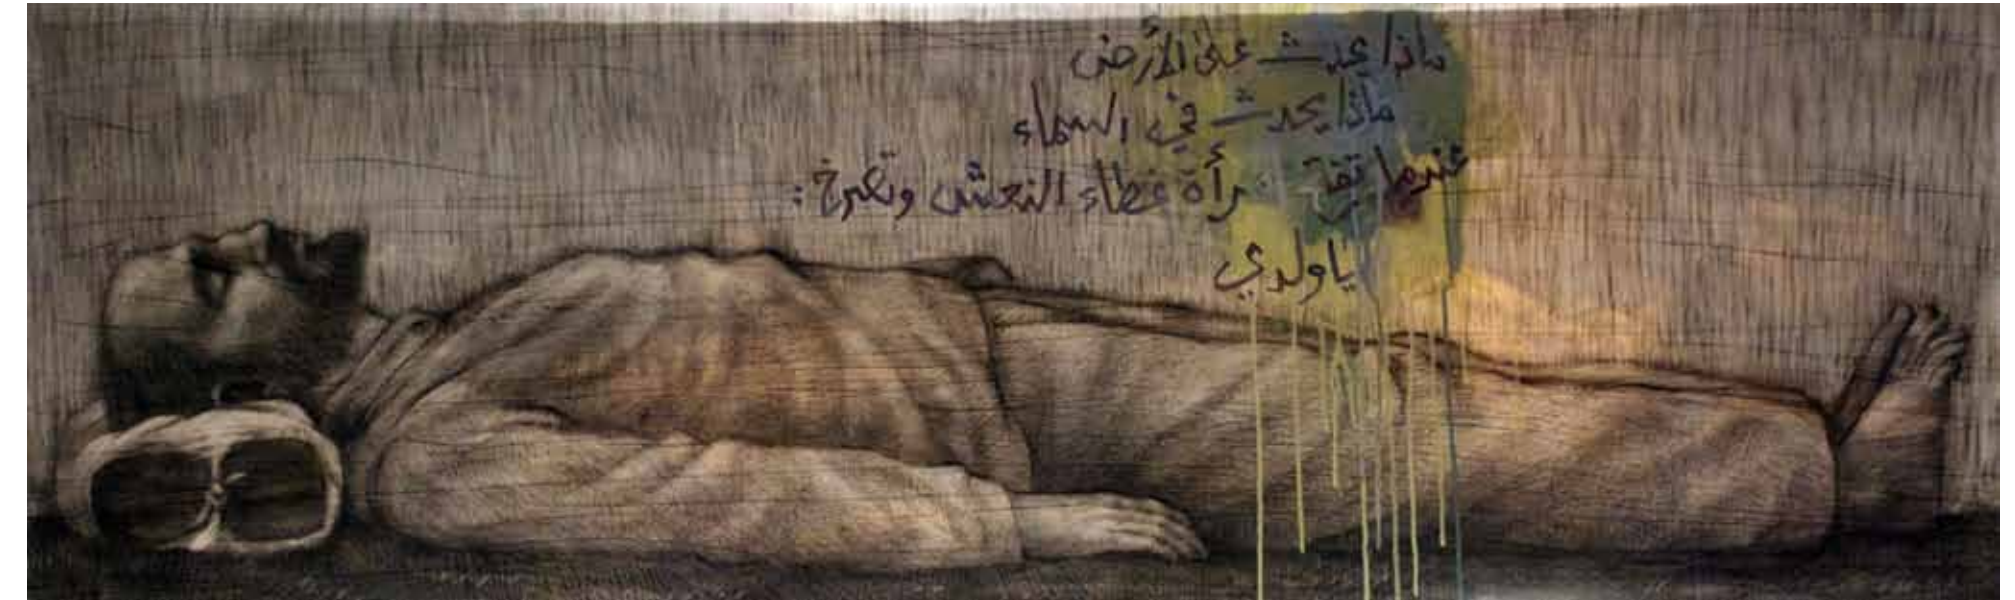 ماذا يحدث على الأرض
ماذا يحدث في السماء
عندما تفتح مرأة غطاء النعش وتصرخ:
يا ولدي